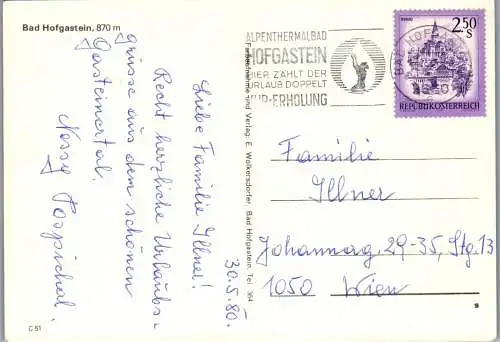 Bad Hofgastein, 870 m
30.5.80.
Liebe Familie Illner!
Recht herzliche Urlaubs-
grüsse aus dem schönen
Gasteinertal.
Pospichal.
C 51
Farbaufnahme und Verlag: E. Wolkersdorfer, Bad Hofgastein, Tel. 364
ALPENTHERMALBAD
HOFGASTEIN
HIER ZÄHLT DER
URLAUB DOPPELT
KUR-ERHOLUNG
BAD HOFGASTEIN
2.50
S
REPUBLIK ÖSTERREICH
Familie
Illner
Johannag. 29-35, Stg. 13
1050 Wien